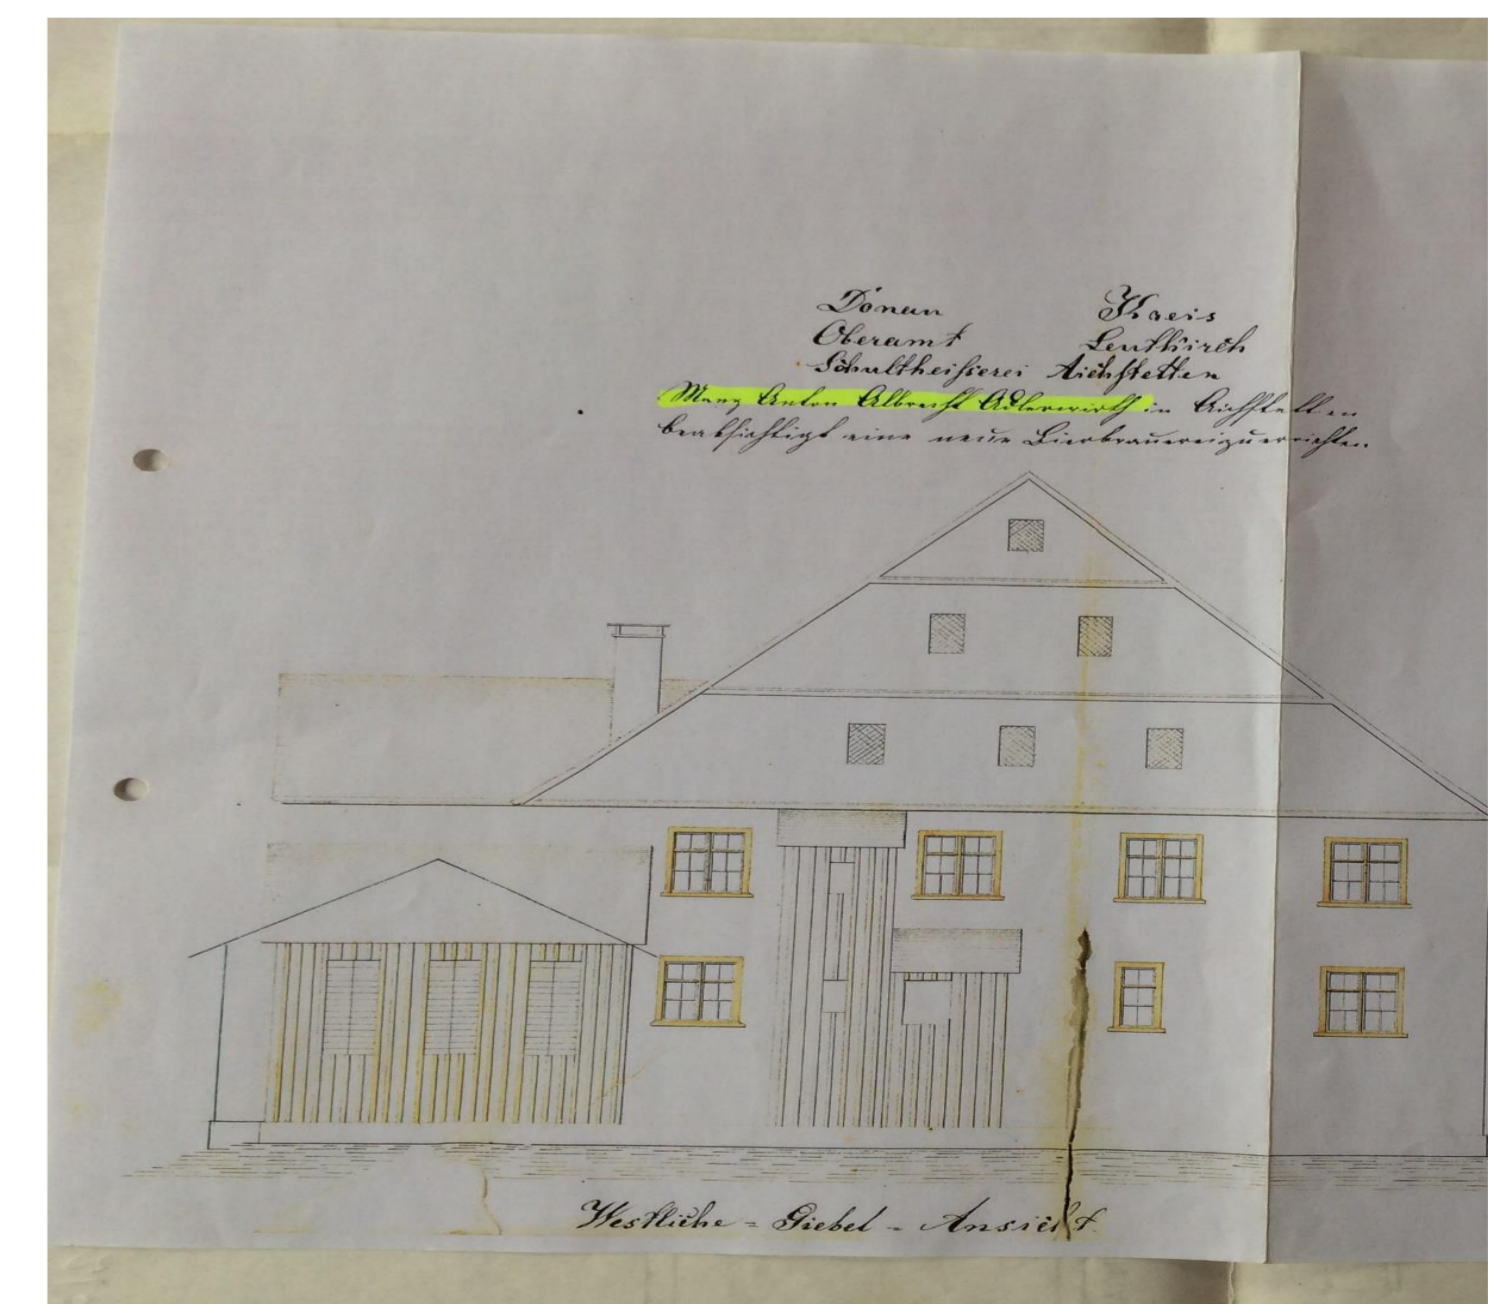 Donau Kreis
Oberamt Leutkirch
Schultheißerei Aichstetten
Manz Anton Albrecht Adlerwirth in Aichstetten
beabsichtigt eine neue Bierbrauerei zu errichten.
Westliche = Giebel - Ansicht